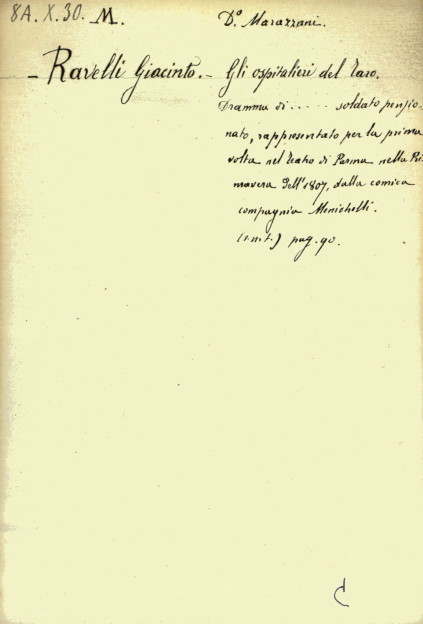 8A.X.30. M. D.º Marazzani.
- Ravelli Giacinto. - Gli ospitalieri del Taro.
Dramma di ..... soldato pensio-
nato, rappresentato per la prima
volta nel Teatro di Parma nella Pri-
mavera dell'1807, dalla comica
compagnia Menichelli.
(s.n.t.) pag. 90.
C